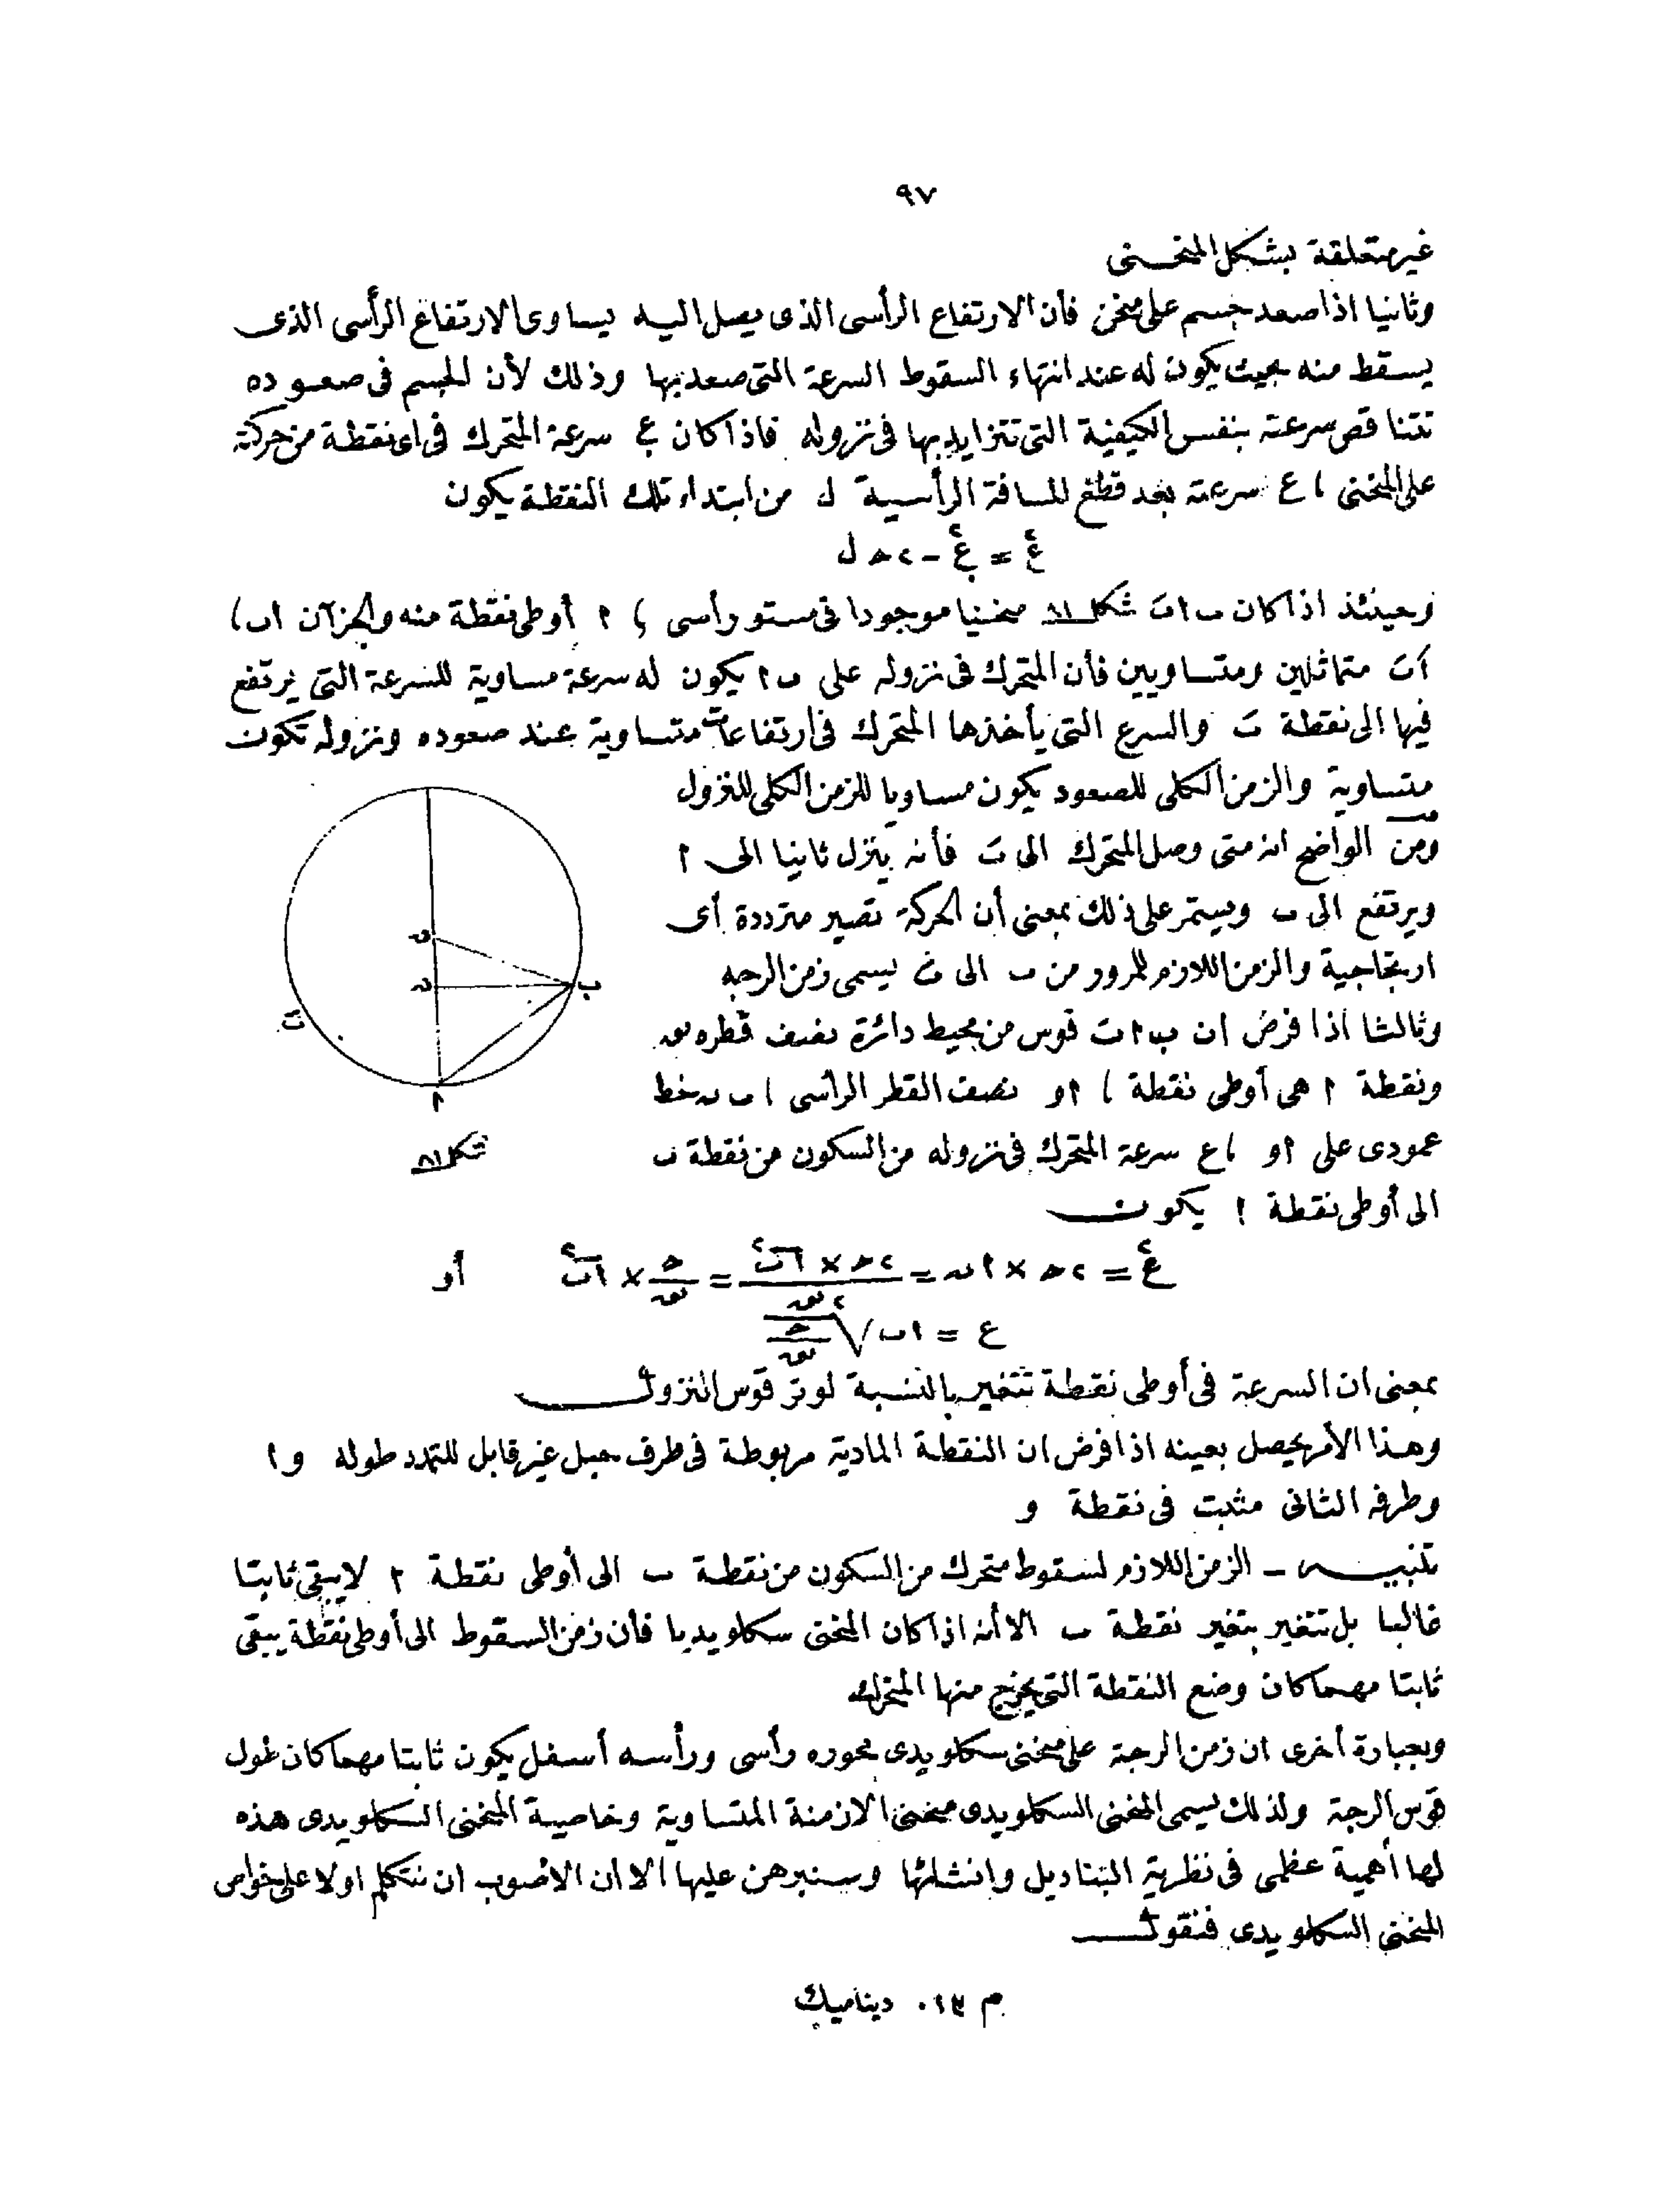 ٩٧
غير متعلقة بشكل المنحنى
وثانيا اذا صعد جسم على منحن فأن الارتفاع الرأسى الذى يصل اليه يساوى الارتفاع الرأسى الذى
يسقط منه بحيث يكون له عند انتهاء السقوط السرعة التى صعد بها وذلك لأن الجسم فى صعوده
تتناقص سرعته بنفس الكيفية التى تتزايد بها فى نزوله فاذا كان عٍ سرعة المتحرك فى اى نقطة من حركته
على المنحنى ، ع سرعته بعد قطع المسافة الرأسية ل من ابتداء تلك النقطة يكون
ع٢ = عٍ٢ - ٢ حـ ل
وحينئذ اذا كان ب ا بَ شكل ٨١ منحنيا موجودا فى مستو رأسى ، ا أوطى نقطة منه والجزآن ا ب ،
ا بَ متماثلين ومتساويين فأن المتحرك فى نزوله على ب ا يكون له سرعة مساوية للسرعة التى يرتفع
فيها الى نقطة بَ والسرع التى يأخذها المتحرك فى ارتفاعات متساوية عند صعوده ونزوله تكون
متساوية والزمن الكلى للصعود يكون مساويا للزمن الكلى للنزول
ومن الواضح انه متى وصل المتحرك الى بَ فأنه ينزل ثانيا الى ا
ويرتفع الى ب ويستمر على ذلك بمعنى أن الحركة تصير مترددة أى
ارتجاجية والزمن اللازم للمرور من ب الى بَ يسمى زمن الرجه
وثالثا اذا فرض ان ب ا بَ قوس من محيط دائرة نصف قطره س
ونقطة ا هى أوطى نقطة ، ا و نصف القطر الرأسى ، ب ن خط
عمودى على ا و ، ع سرعة المتحرك فى نزوله من السكون من نقطة ب
الى أوطى نقطة ا يكون
ب
ن
بَ
ا
شكل ٨١
ع٢ = ٢ حـ × ا ن = ٢ حـ × ا ب٢ / ٢ س = حـ / س × ا ب٢ أو
ع = ا ب √ حـ / س
بمعنى ان السرعة فى أوطى نقطة تتغير بالنسبة لوتر قوس النزول
وهذا الأمر يحصل بعينه اذا فرض ان النقطة المادية مربوطة فى طرف حبل غير قابل للتمدد طوله و ا
وطرفه الثانى مثبت فى نقطة و
تنبيه - الزمن اللازم لسقوط متحرك من السكون من نقطة ب الى أوطى نقطة ا لا يبقى ثابتا
غالبا بل تتغير بتغير نقطة ب الا أنه اذا كان المنحنى سكلويديا فأن زمن السقوط الى أوطى نقطة يبقى
ثابتا مهما كان وضع النقطة التى يخرج منها المتحرك
وبعبارة أخرى ان زمن الرجة على منحنى سكلويدى محوره رأسى ورأسه أسفل يكون ثابتا مهما كان طول
قوس الرجة ولذلك يسمى المنحنى السكلويدى منحنى الازمنة المتساوية وخاصية المنحنى السكلويدى هذه
لها أهمية عظمى فى نظرية البناديل وانشائها وسنبرهن عليها الا ان الاصوب ان نتكلم اولا على خواص
المنحنى السكلويدى فنقول
م ١٣ ٠ ديناميك